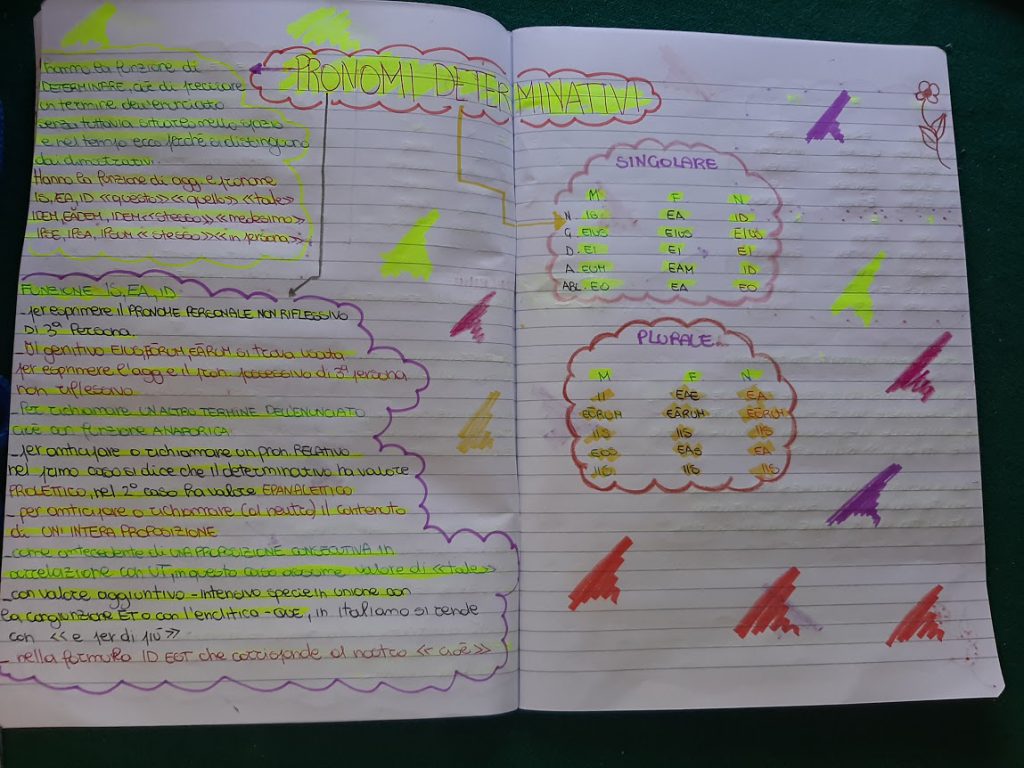 PRONOMI DETERMINATIVI
Hanno la funzione di
DETERMINARE, cioè di precisare
un termine dell'enunciato
senza tuttavia situarlo nello spazio
e nel tempo ecco perché si distinguono
dai dimostrativi.
Hanno la funzione di agg. e pronome
IS, EA, ID «questo» «quello» «tale»
IDEM, EĂDEM, IDEM «stesso» «medesimo»
IPSE, IPSA, IPSUM «stesso» «in persona»
FUNZIONE IS, EA, ID
- per esprimere il PRONOME PERSONALE NON RIFLESSIVO
DI 3ª Persona.
- Il genitivo EIUS, EŌRUM, EĀRUM si trova usato
per esprimere l'agg e il pron. possessivo di 3ª persona
non riflessivo
Per richiamare UN ALTRO TERMINE DELL'ENUNCIATO
cioè con funzione ANAFORICA
- per anticipare o richiamare un pron. RELATIVO
nel primo caso si dice che il determinativo ha valore
PROLETTICO, nel 2º caso ha valore EPANALETTICO
- per anticipare o richiamare (al neutro) il contenuto
di UN'INTERA PROPOSIZIONE
- come antecedente di UNA PROPOSIZIONE CONSECUTIVA in
correlazione con UT, in questo caso assume valore di «tale»
- con valore aggiuntivo - intensivo specie in unione con
la congiunzione ET o con l'enclitica -QUE, in italiano si rende
con «e per di più»
- nella formula ID EST che corrisponde al nostro «cioè»
SINGOLARE
M F N
N. IS EA ID
G. EIUS EIUS EIUS
D. EI EI EI
A. EUM EAM ID
ABL. EO EA EO
PLURALE
M F N
II EAE EA
EŌRUM EĀRUM EŌRUM
IIS IIS IIS
EOS EAS EA
IIS IIS IIS